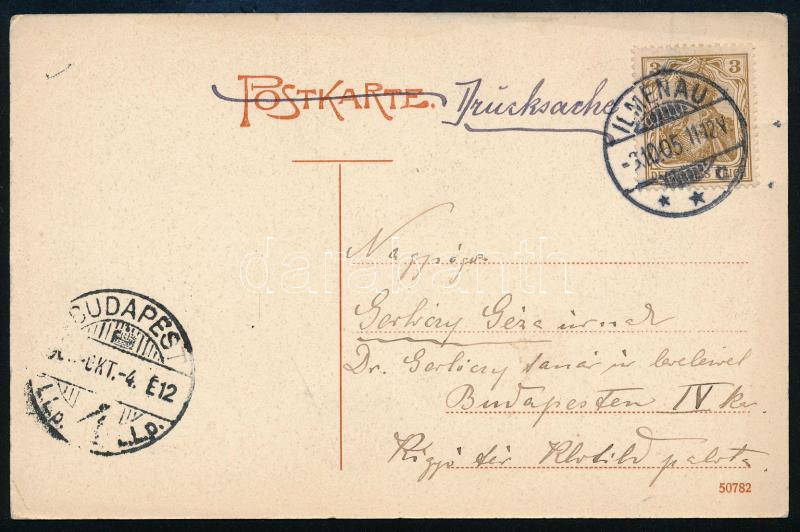 POSTKARTE. Drucksache
3
ILMENAU
-3.10.05.11-12V.
* * a
Nagyságos
Gerlóczy Géza úrnak
Dr. Gerlóczy tanár úr leveleivel
Budapesten IV ker.
Kígyó tér Klotild palota
BUDAPEST
OKT.-4. E12
50782
darabanth